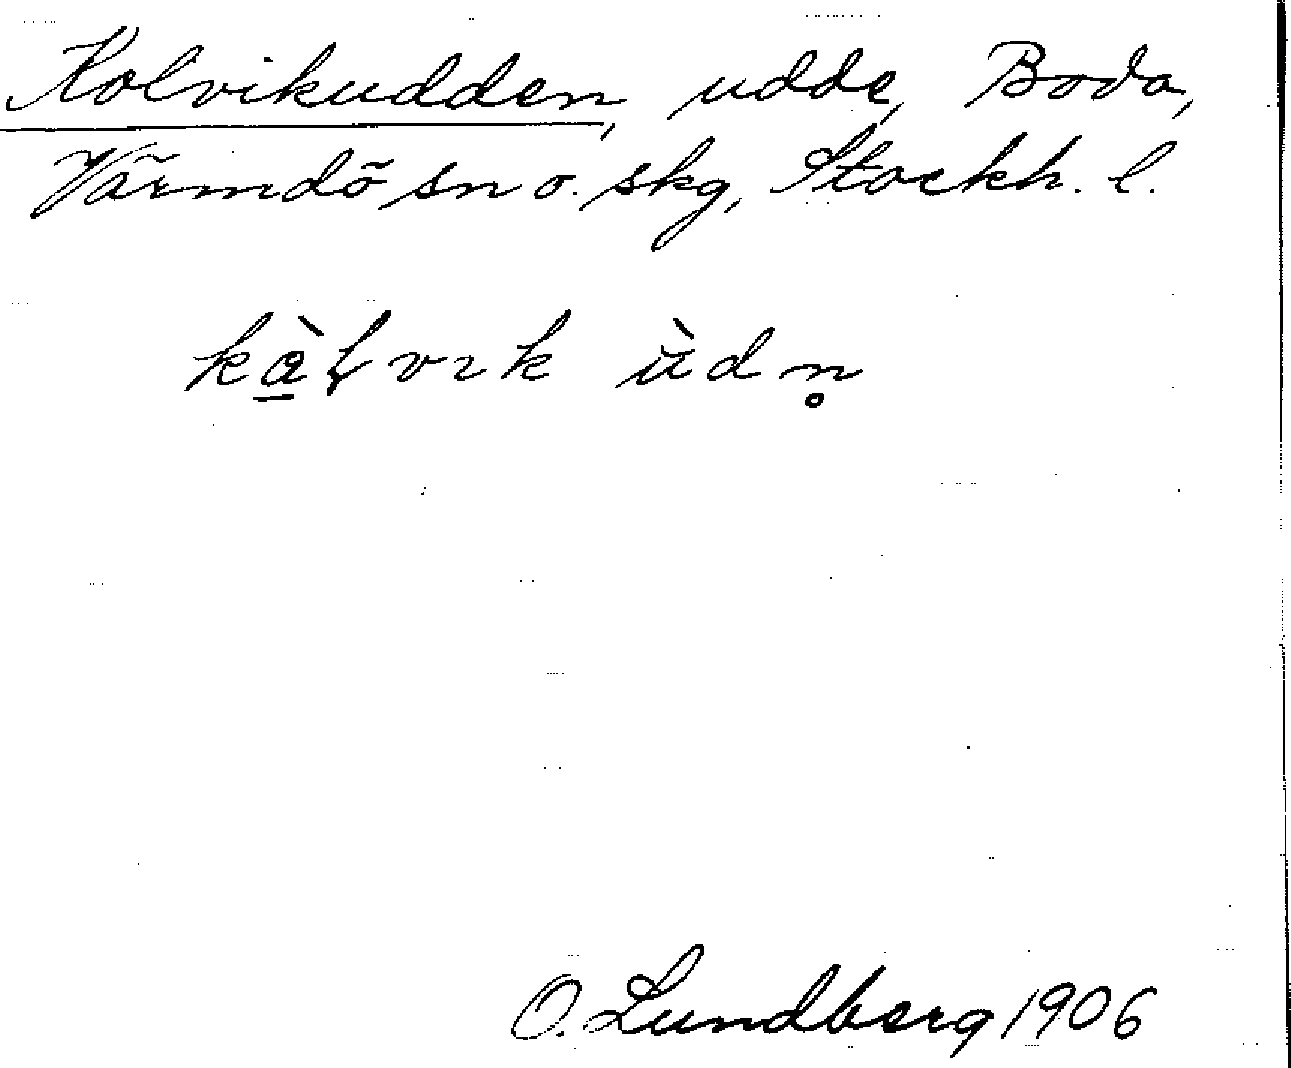 Kolvikudden, udde, Boda,
Värmdö sn o. skg, Stockh. l.
kàlvık ùdn̥
O. Lundberg 1906